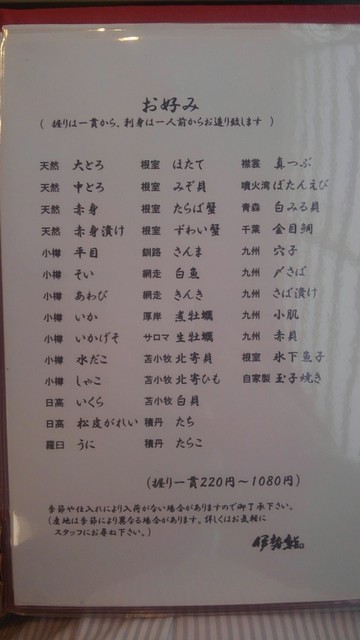 お好み
( 握りは一貫から、刺身は一人前からお造り致します )
天然 大とろ 根室 ほたて 襟裳 真つぶ
天然 中とろ 根室 みぞ貝 噴火湾 ぼたんえび
天然 赤身 根室 たらば蟹 青森 白みる貝
天然 赤身漬け 根室 ずわい蟹 千葉 金目鯛
小樽 平目 釧路 さんま 九州 穴子
小樽 そい 網走 白魚 九州 〆さば
小樽 あわび 網走 きんき 九州 さば漬け
小樽 いか 厚岸 煮牡蠣 九州 小肌
小樽 いかげそ サロマ 生牡蠣 九州 赤貝
小樽 水だこ 苫小牧 北寄貝 根室 氷下魚子
小樽 しゃこ 苫小牧 北寄ひも 自家製 玉子焼き
日高 いくら 苫小牧 白貝
日高 松皮がれい 積丹 たち
羅臼 うに 積丹 たらこ
(握り一貫220円～1080円)
季節や仕入れにより入荷がない場合がありますので御了承下さい。
(産地は季節により異なる場合があります。詳しくはお気軽に
スタッフにお尋ね下さい。)
伊勢鮨